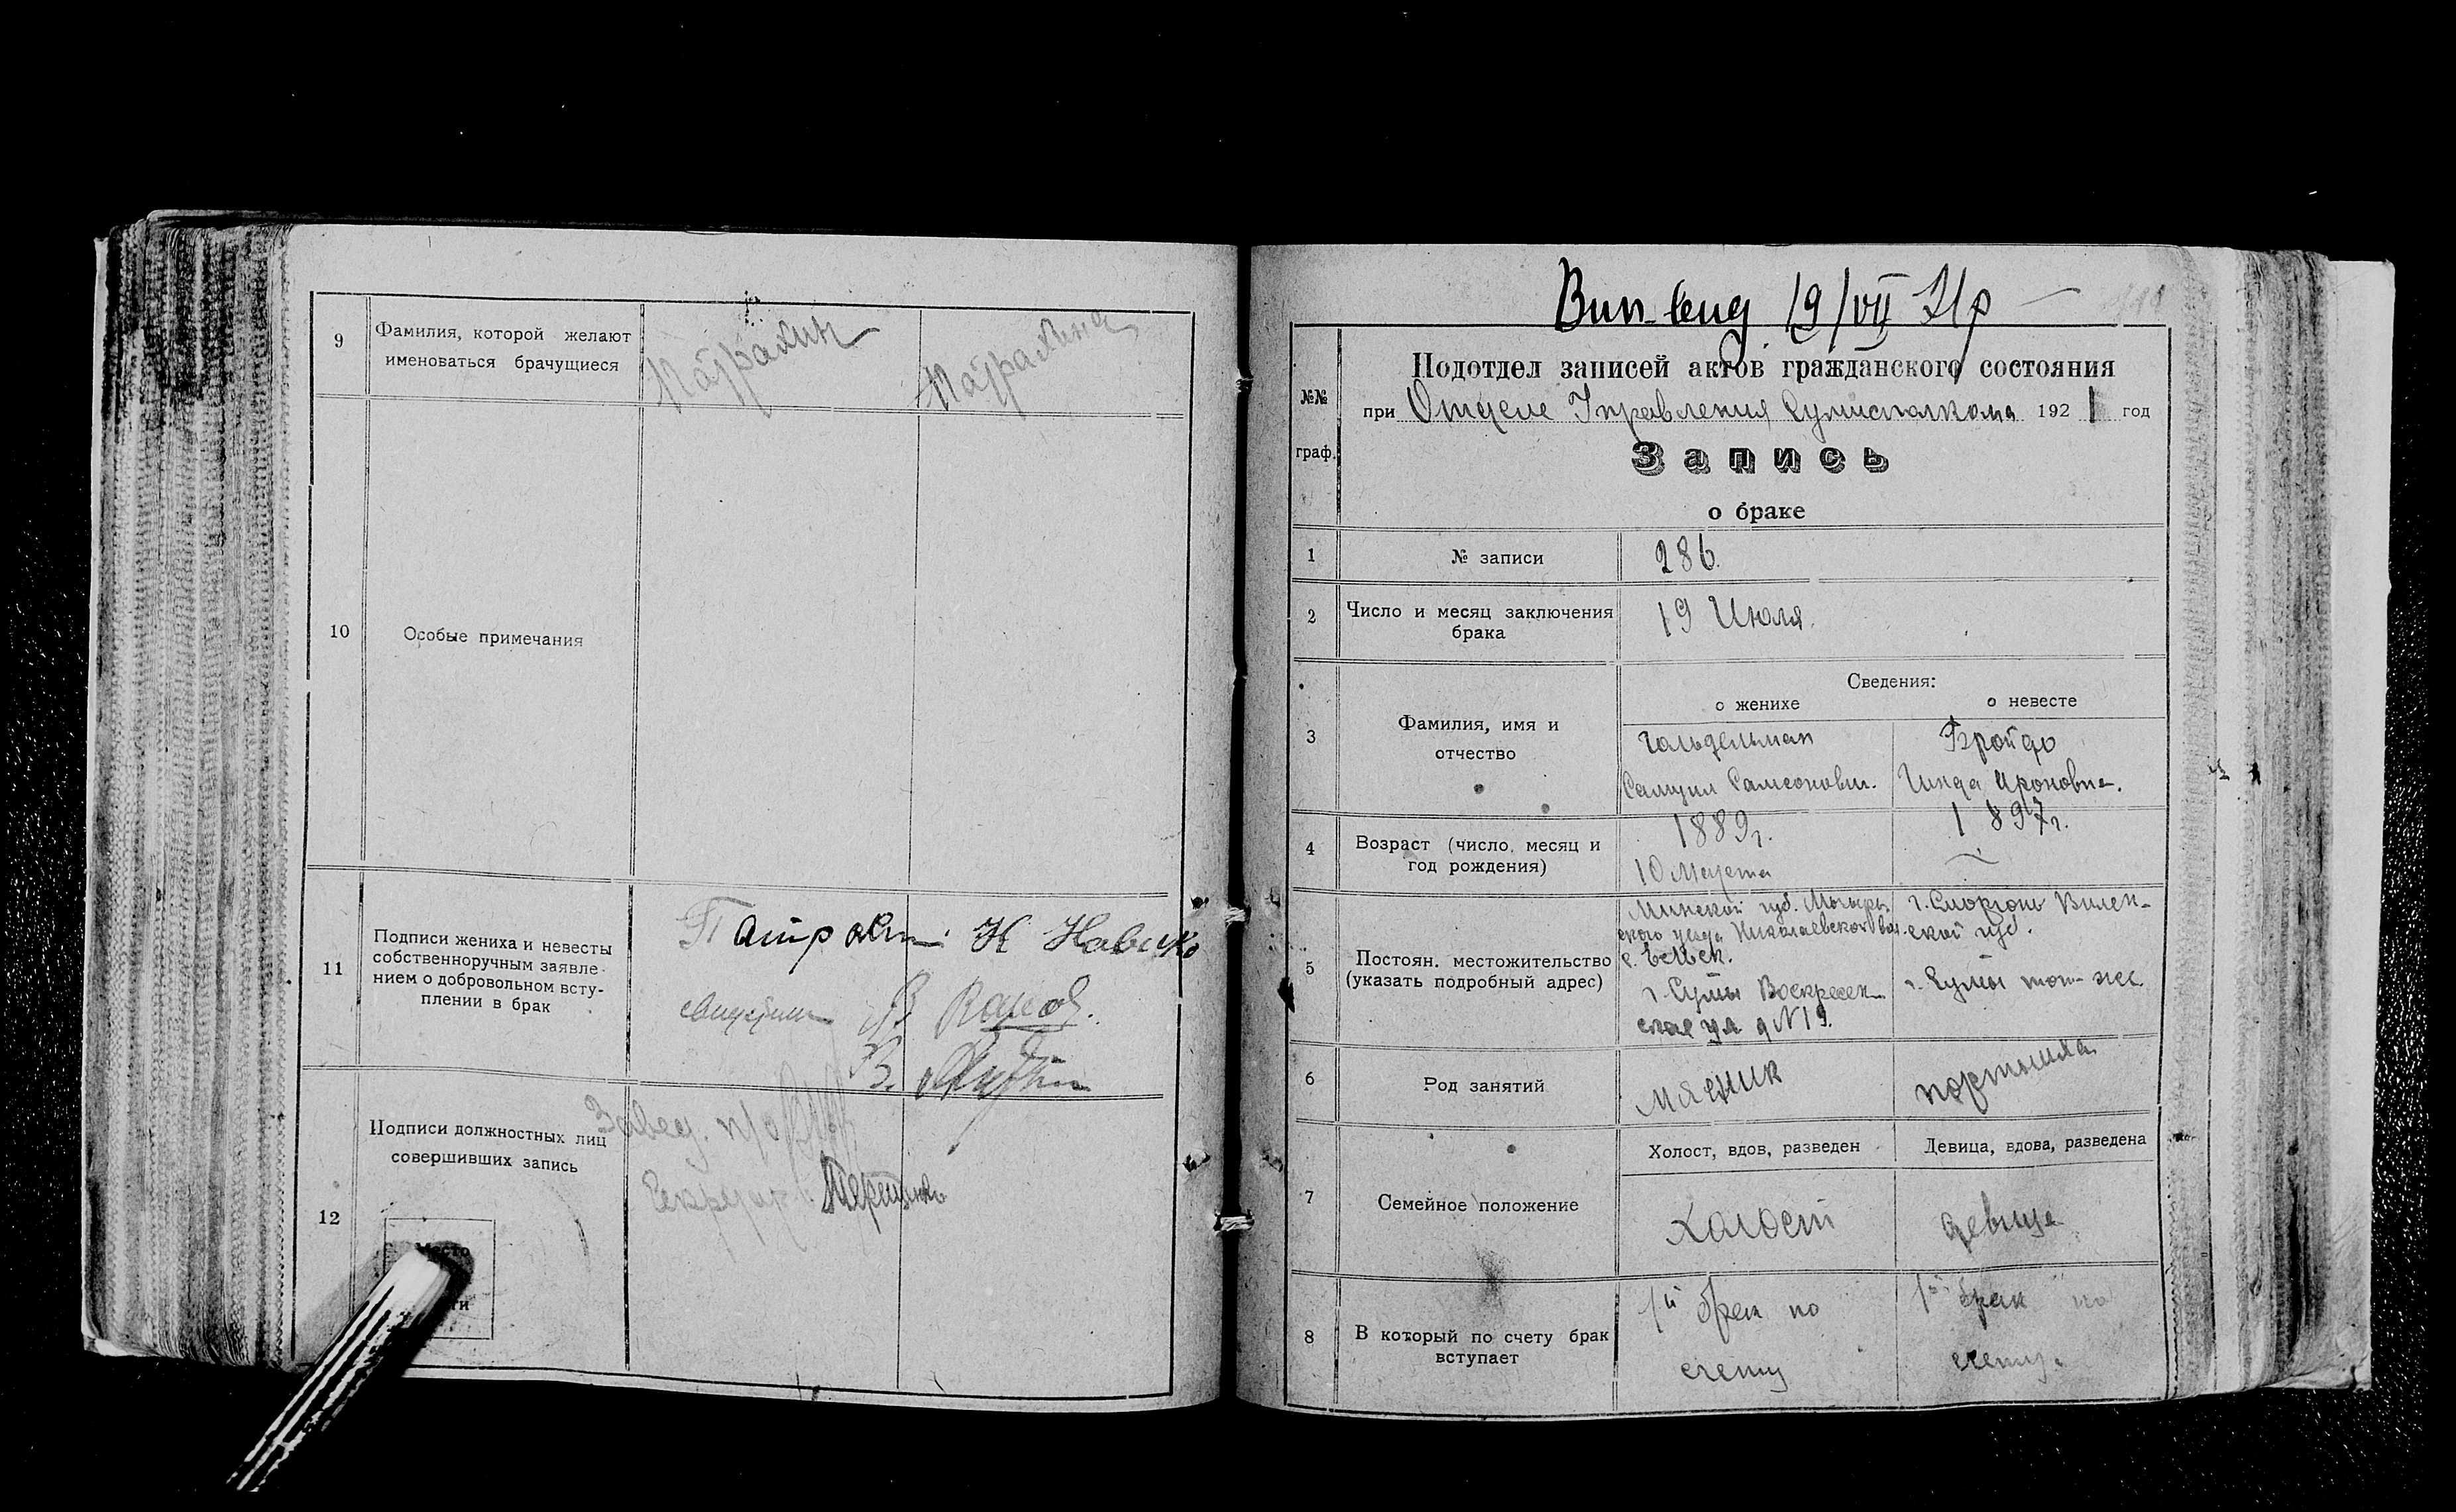 9
Фамилия, которой желают
именоваться брачущиеся
Патрахин
Патрахина
10
Особые примечания
11
Подписи жениха и невесты
собственноручным заявле-
нием о добровольном всту-
плении в брак
Патрахин Н Новико
12
Подписи должностных лиц
совершивших запись
Завед. п/о
Секретар Терещенко
Место
ти
19/VII 21 р
№№
граф.
Подотдел записей актов гражданского состояния
при Отделе Управления Сумисполкома 1921 год
Запись
о браке
1
№ записи
286.
2
Число и месяц заключения
брака
19 Июля.
Сведения:
о женихе
о невесте
3
Фамилия, имя и
отчество
Гольдельман
Самуил Самсонович.
Бройдо
Гинда Ароновна.
4
Возраст (число, месяц и
год рождения)
1889г.
10 Марта
1897г.
5
Постоян. местожительство
(указать подробный адрес)
Минской губ. Мозырь
ского уезда Николаевской вол.
г. Сумы Воскресен-
ская ул д N19.
г. Сморгонь Вилен-
ской губ.
г. Сумы том-же
6
Род занятий
мясник
портниха
7
Семейное положение
Холост, вдов, разведен
Девица, вдова, разведена
холост
девица
8
В который по счету брак
вступает
1й брак по
счету
1й брак по
счету.